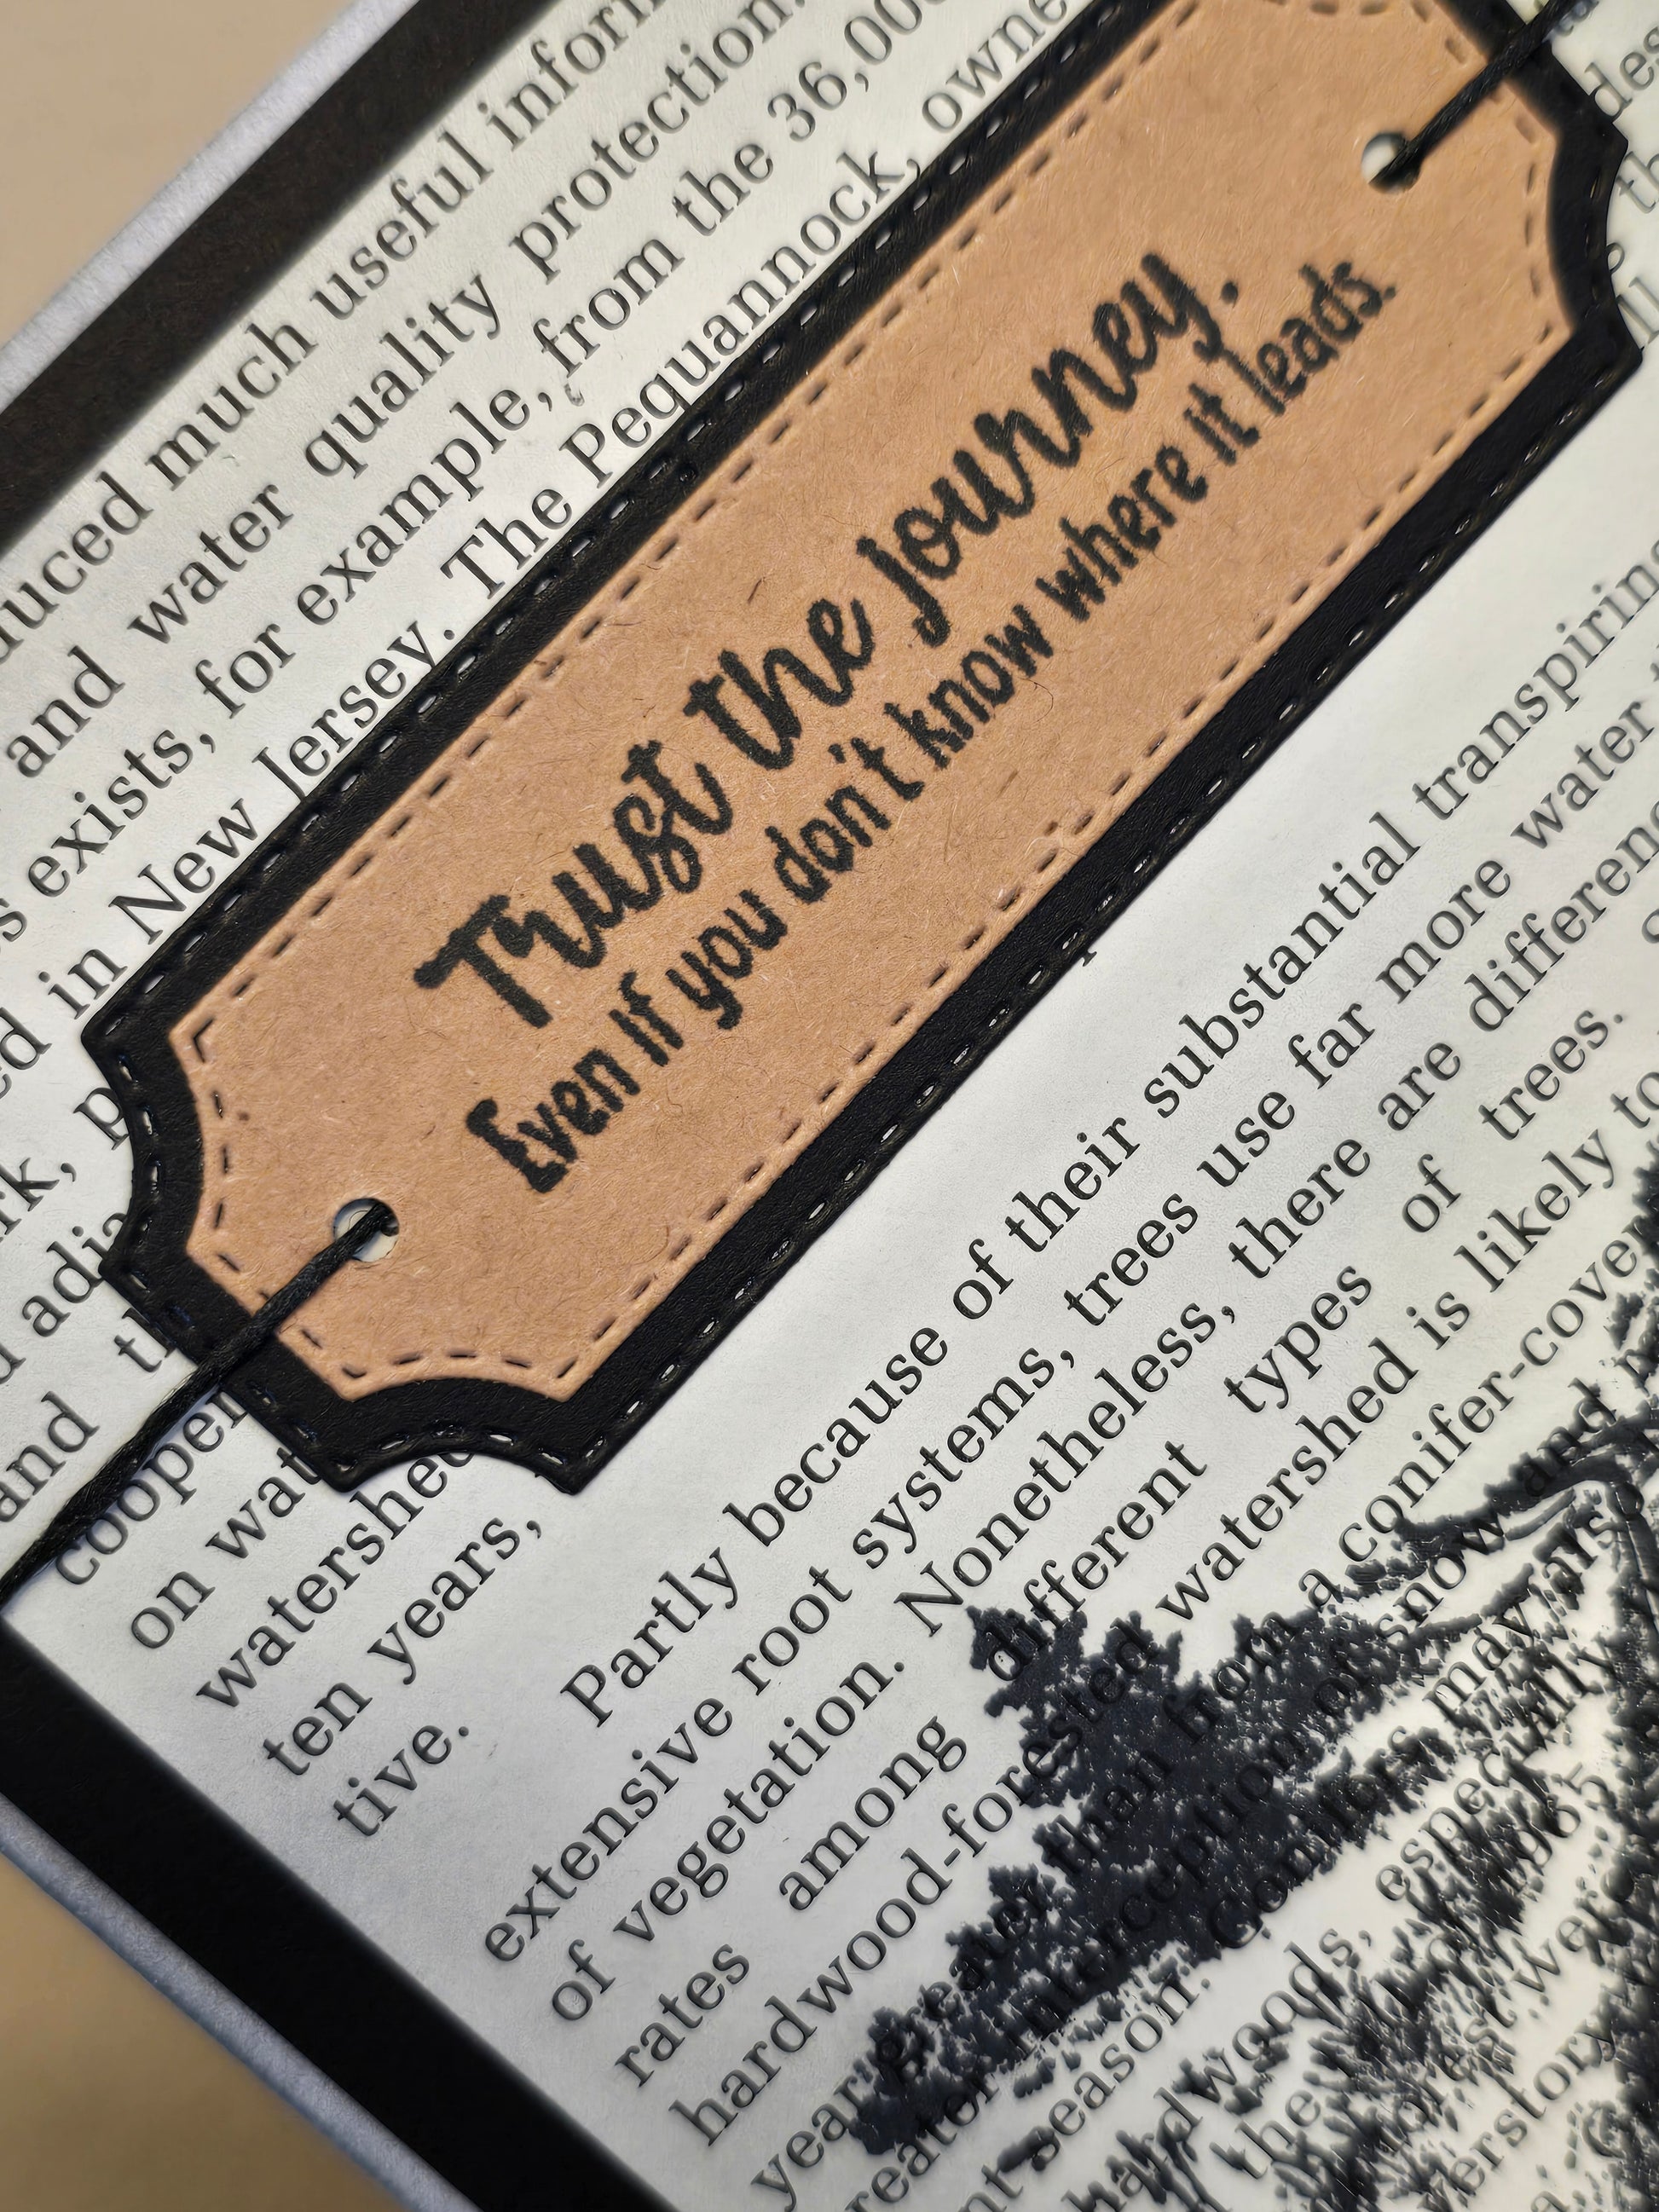 duced much useful inform
and water quality protection.
s exists, for example, from the 36,000
ed in New Jersey. The Pequannock, owne
Trust the journey.
Even if you don't know where it leads.
and
cooper
on wat
watershed
ten years,
tive.
Partly because of their substantial transpiring
extensive root systems, trees use far more water
of vegetation. Nonetheless, there are differenc
rates among different types of trees.
hardwood-forested watershed is likely to
year greater than from a conifer-cover
interception of snow and
season. Conifers may
hardwoods, especially